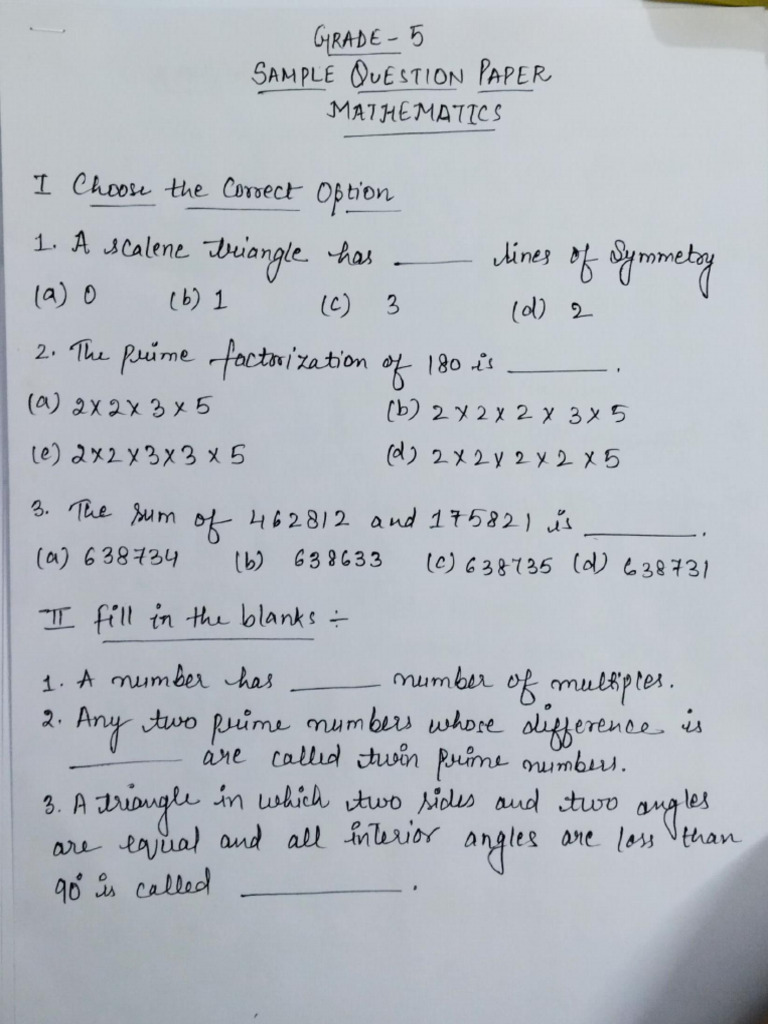 GRADE - 5
SAMPLE QUESTION PAPER
MATHEMATICS
I Choose the Correct Option
1. A scalene triangle has ______ lines of Symmetry
(a) 0 (b) 1 (c) 3 (d) 2
2. The prime factorization of 180 is ______.
(a) 2×2×3×5 (b) 2×2×2×3×5
(c) 2×2×3×3×5 (d) 2×2×2×2×5
3. The sum of 462812 and 175821 is ______.
(a) 638734 (b) 638633 (c) 638735 (d) 638731
II fill in the blanks ÷
1. A number has ______ number of multiples.
2. Any two prime numbers whose difference is
______ are called twin prime numbers.
3. A triangle in which two sides and two angles
are equal and all interior angles are less than
90° is called ______.